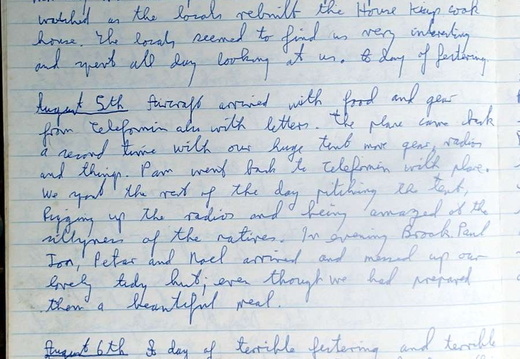 watched as the locals rebuilt the House Keep cook
house. The locals seemed to find us very interesting
and spent all day looking at us. A day of festering
August 5th Aircraft arrived with food and gear
from Telefomin also with letters. The plane came back
a second time with our huge tent more gear, radios
and things. Pam went back to Telefomin with plane.
We spent the rest of the day pitching the tent,
Rigging up the radios and being amazed at the
sillyness of the natives. In evening Brook Paul
Jon, Peter and Noel arrived and messed up our
lovely tidy hut; even though we had prepared
them a beautiful meal.
August 6th A day of terrible festering and terrible